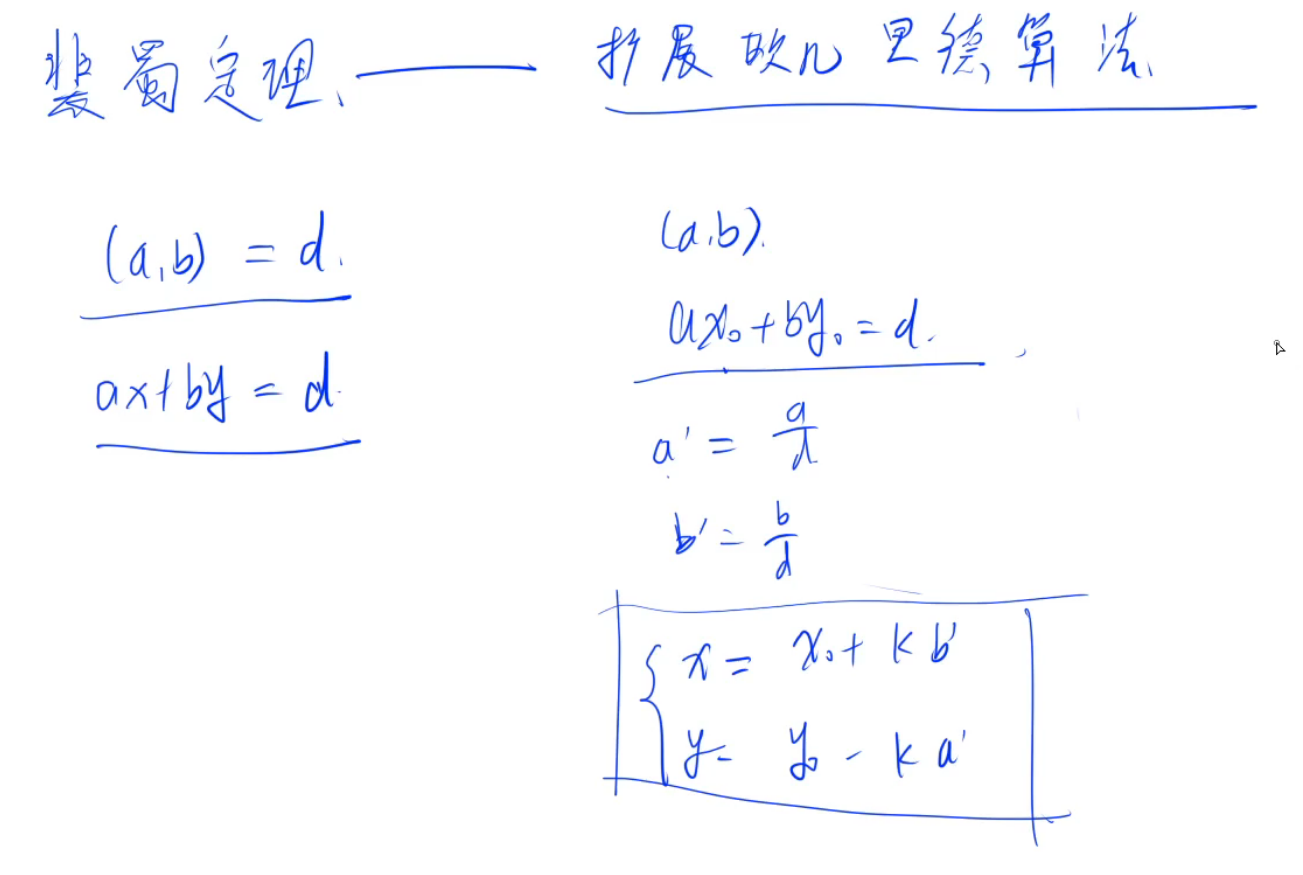 裴蜀定理、—— 扩展欧几里德算法、
(a,b) = d.
ax+by = d.
(a,b).
ax₀+by₀ = d.
a' = a/d
b' = b/d
{ x = x₀ + k b'
y = y₀ - k a'